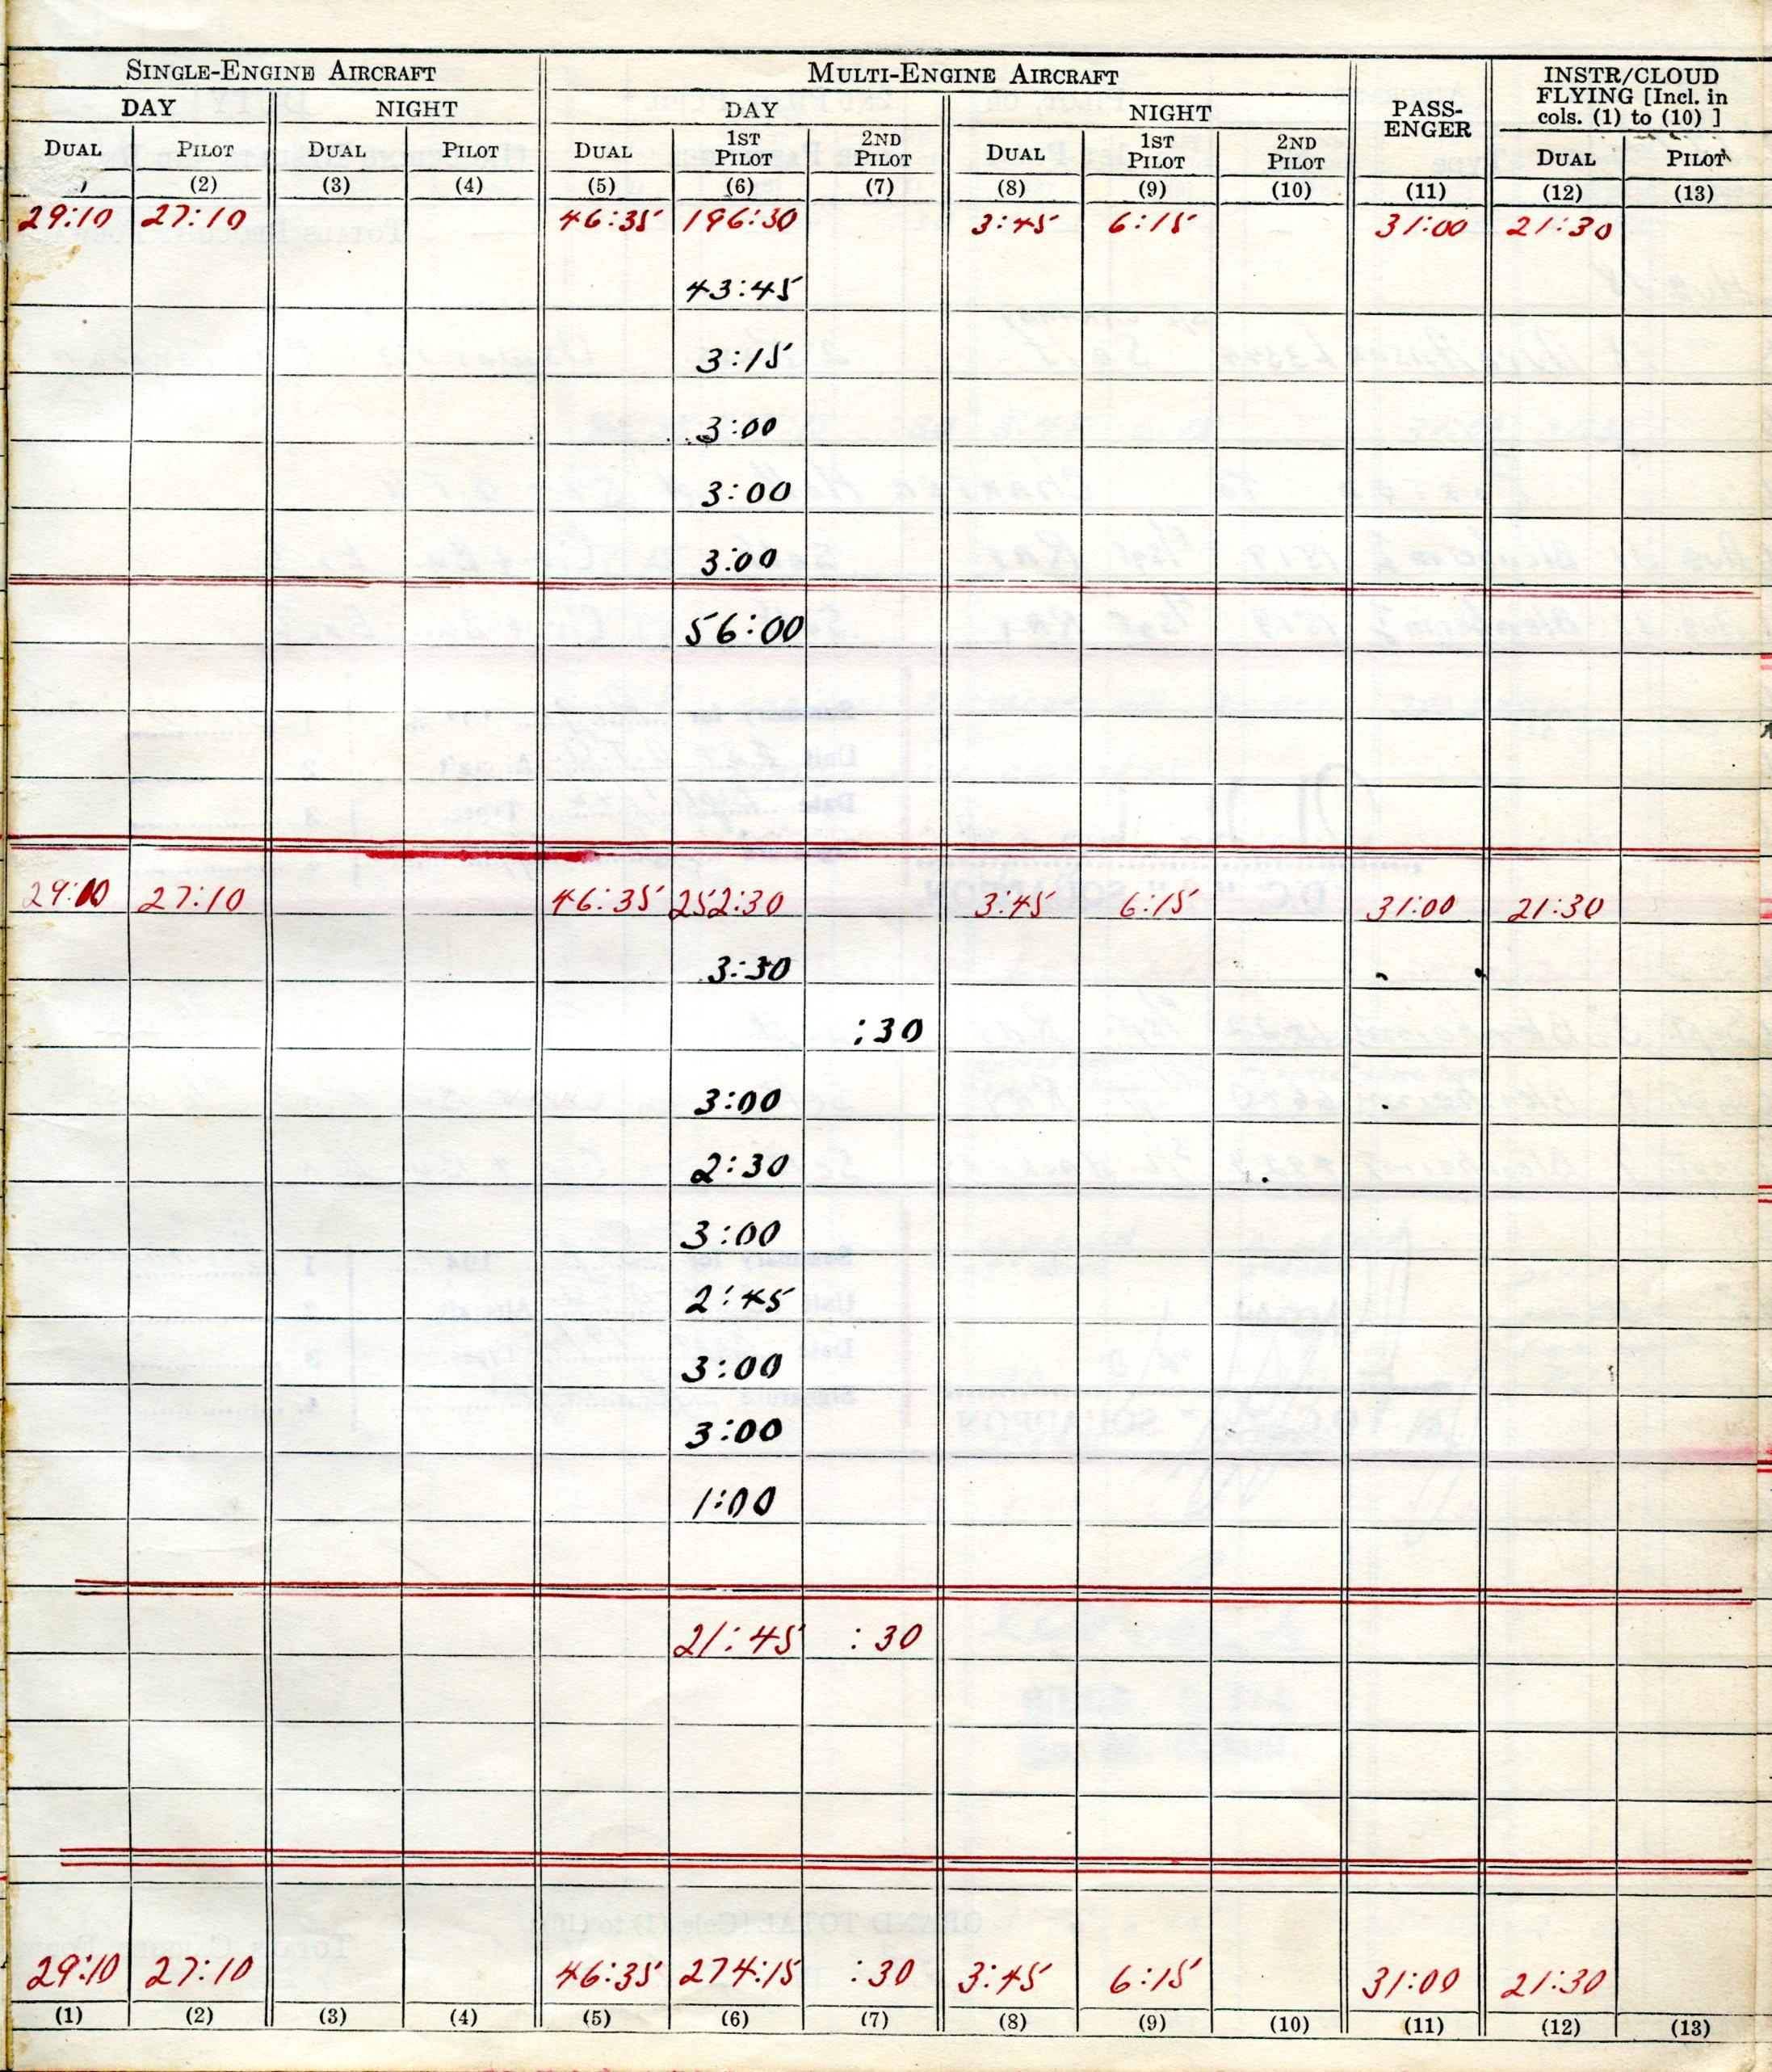 SINGLE-ENGINE AIRCRAFT MULTI-ENGINE AIRCRAFT PASS-ENGER INSTR/CLOUD FLYING [Incl. in cols. (1) to (10) ]
DAY NIGHT DAY NIGHT
DUAL PILOT DUAL PILOT DUAL 1ST PILOT 2ND PILOT DUAL 1ST PILOT 2ND PILOT DUAL PILOT
) (2) (3) (4) (5) (6) (7) (8) (9) (10) (11) (12) (13)
29:10 27:10 46:35 196:30 3:45 6:15 31:00 21:30
43:45
3:15
3:00
3:00
3:00
56:00
29:10 27:10 46:35 252:30 3:45 6:15 31:00 21:30
3:30
:30
3:00
2:30
3:00
2:45
3:00
3:00
1:00
21:45 :30
29:10 27:10 46:35 274:15 :30 3:45 6:15 31:00 21:30
(1) (2) (3) (4) (5) (6) (7) (8) (9) (10) (11) (12) (13)